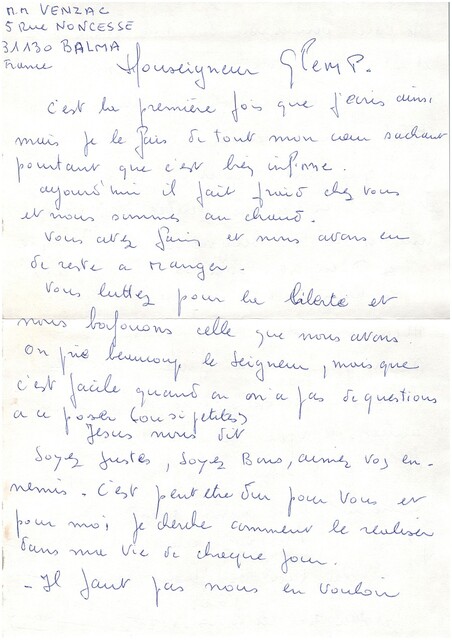 M.M VENZAC
5 Rue NONCESSE
31130 BALMA
France
Monseigneur Glemp.
c'est la première fois que j'écris ainsi
mais je le fais de tout mon cœur sachant
pourtant que c'est bien infime.
aujourd'hui il fait froid chez vous
et nous sommes au chaud.
Vous avez faim et nous avons eu
de reste a manger.
Vous luttez pour la liberté et
nous bafouons celle que nous avons.
On prie beaucoup le Seigneur, mais que
c'est facile quand on on'a pas de questions
a ce poser (ou si petites)
Jesus nous dit
Soyez Justes, Soyez Bons, aimez vos en-
nemis. C'est peut etre dur pour Vous et
pour moi, je cherche comment le realiser
dans ma vie de chaque jour.
- Il faut pas nous en vouloir